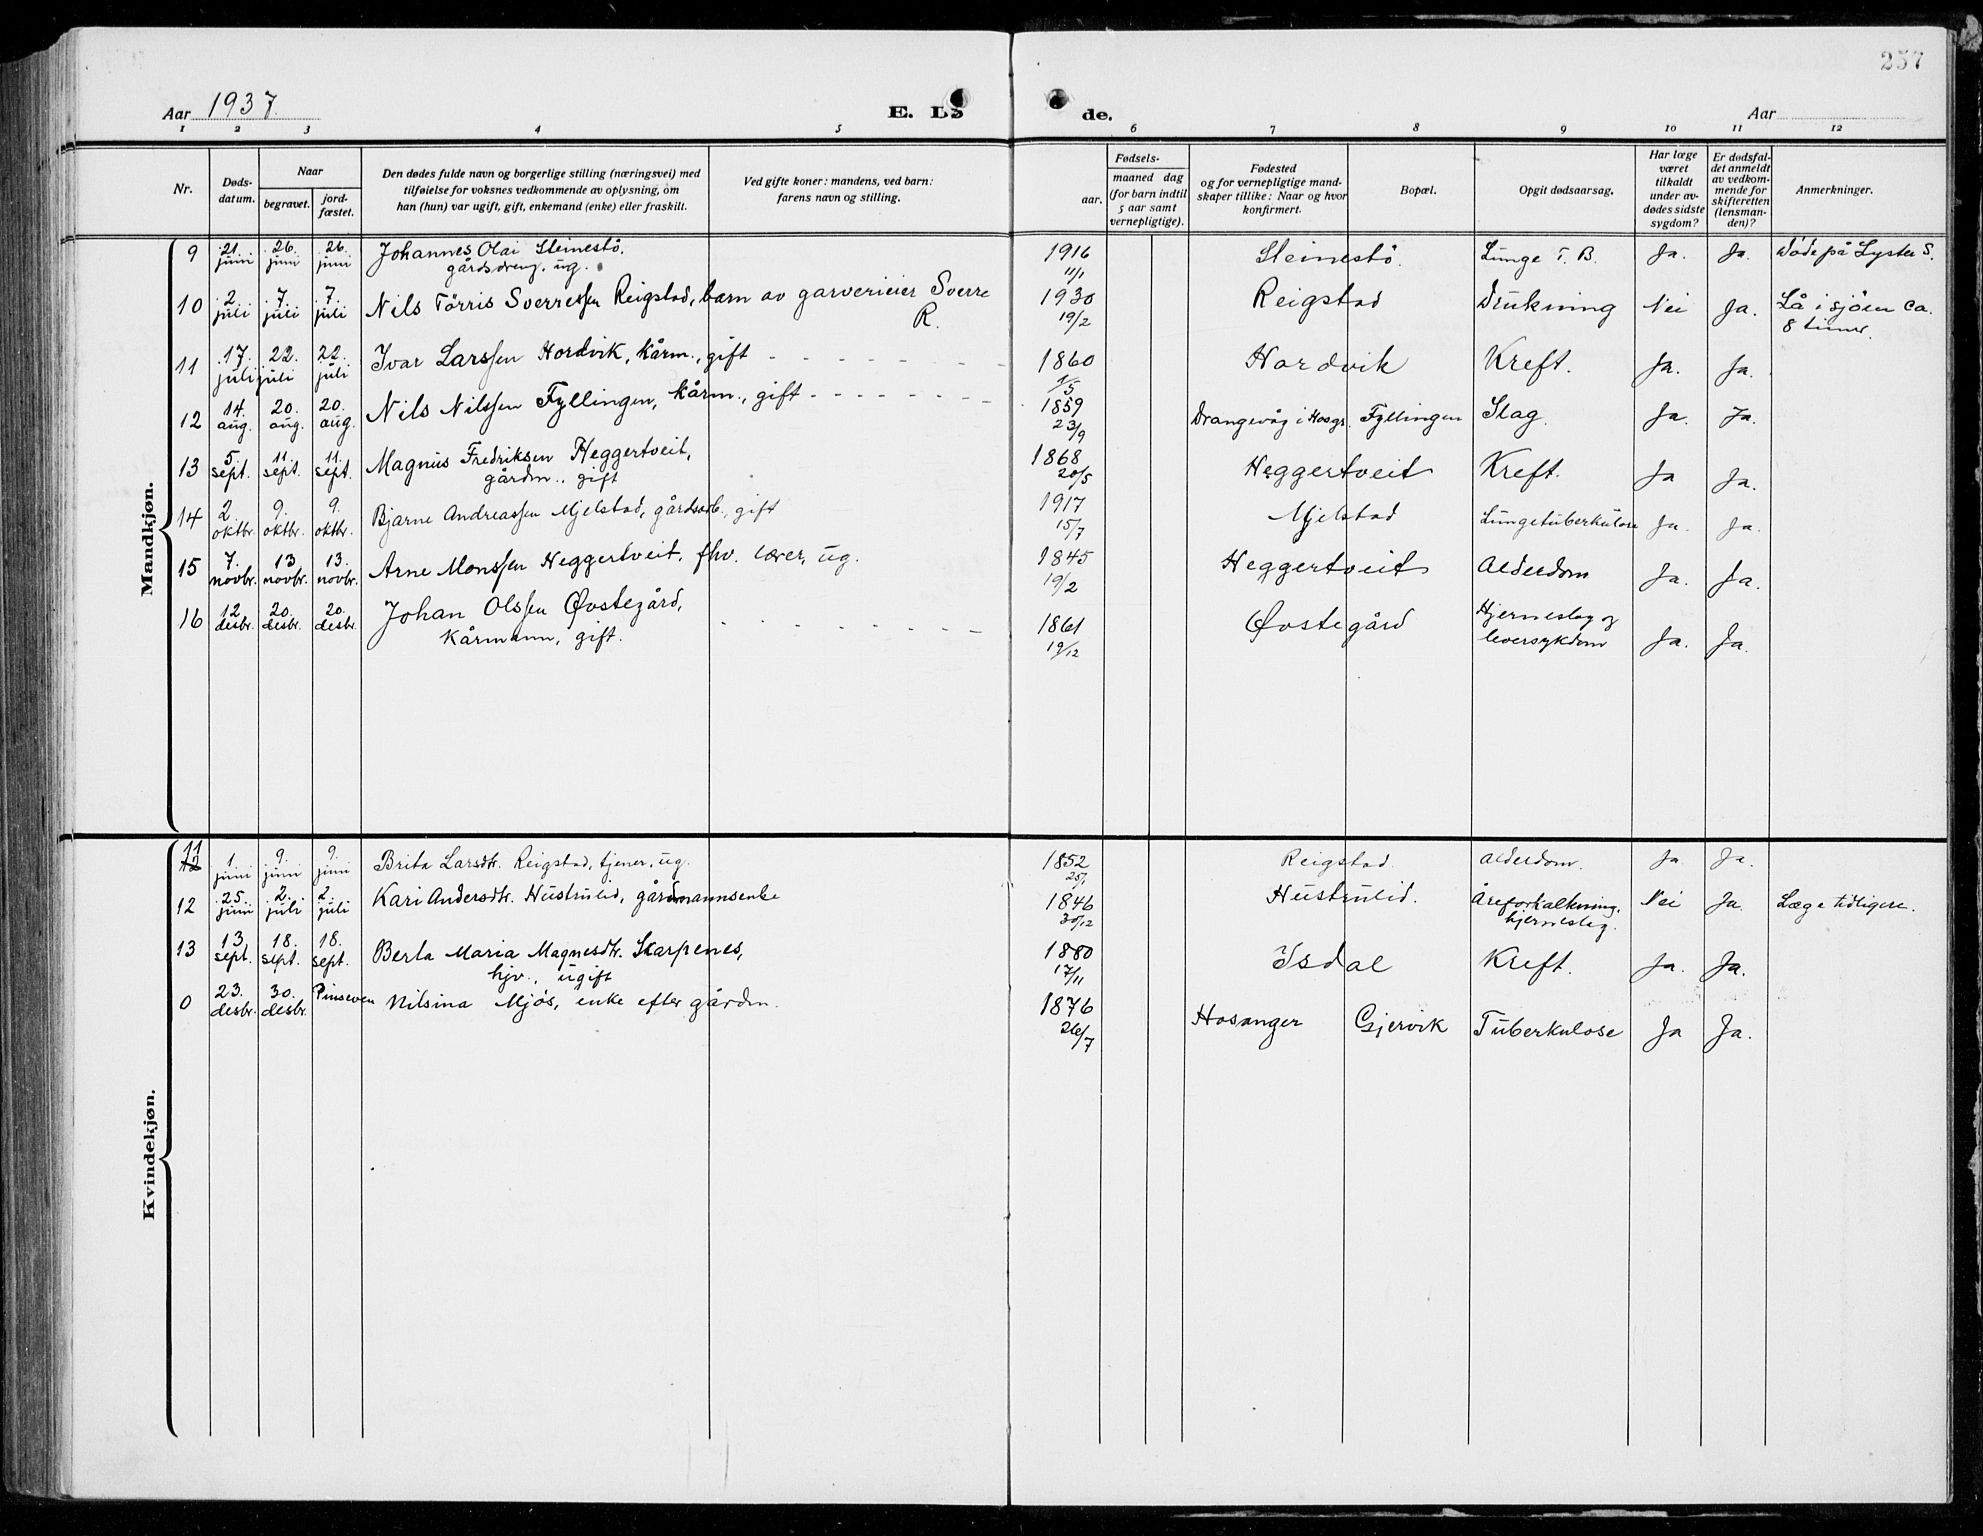 257
Aar 1937.
E. Dø
de.
Aar
1 2 3 4 5 6 7 8 9 10 11 12
Nr.
Døds-
datum.
Naar
begravet.
jord-
fæstet.
Den dødes fulde navn og borgerlige stilling (næringsvei) med
tilføielse for voksnes vedkommende av oplysning, om
han (hun) var ugift, gift, enkemand (enke) eller fraskilt.
Ved gifte koner: mandens, ved barn:
farens navn og stilling.
Fødsels-
aar.
maaned dag
(for barn indtil
5 aar samt
vernepligtige).
Fødested
og for vernepligtige mand-
skaper tillike: Naar og hvor
konfirmert.
Bopæl.
Opgit dødsaarsag.
Har læge
været
tilkaldt
under av-
dødes sidste
sygdom?
Er dødsfal-
det anmeldt
av vedkom-
mende for
skifteretten
(lensman-
den)?
Anmerkninger.
Mandkjøn.
9 21. juni 26. juni 26. juni Johannes Olai Steinestö, gårdsdreng, ug. 1916 11/1 Steinestö. Lunge T. B. Ja. Ja. Döde på Lyster S.
10 2. juli 7. juli 7. juli Nils Törris Sverressen Reigstad, barn av garverieier Sverre R. 1930 19/2 Reigstad Drukning Nei Ja. Lå i sjöen ca. 8 timer.
11 17. juli 22. juli 22. juli Ivar Larssen Hordvik, kårm., gift 1860 1/5 Hordvik Kreft. Ja. Ja.
12 14. aug. 20. aug. 20. aug. Nils Nilssen Fyllingen, kårm., gift 1859 23/9 Drangevåg i Hosgr. Fyllingen Slag. Ja. Ja.
13 5. sept. 11. sept. 11. sept. Magnus Fredriksen Heggertveit, gårdm., gift 1868 20/5 Heggertveit Kreft. Ja Ja.
14 2. oktbr. 9. oktbr. 9. oktbr. Bjarne Andreassen Mjelstad, gårdsarb., gift 1917 15/7 Mjelstad Lungetuberkulose Ja. Ja.
15 7. novbr. 13 novbr. 13. novbr. Arne Monssen Heggertveit, fhv. lærer, ug. 1845 19/2 Heggertveit Alderdom Ja. Ja.
16 12. desbr. 20. desbr. 20. desbr. Johan Olssen Øvstegård, Kårmann, gift. 1861 19/12 Øvstegård Hjerneslag og leversykdom Ja. Ja.
Kvindekjøn.
11 12 1. juni 9. juni 9. juni Brita Larsdtr. Reigstad, tjener, ug. 1852 25/1 Reigstad. Alderdom. Ja Ja.
12 25. juni 2. juli 2. juli Kari Andersdtr. Hustrulid, gårdmannsenke 1846 30/12 Hustrulid. Åreforkalkning. hjerneslag. Nei Ja. Læge tidligere.
13 13 sept. 18. sept. 18. sept. Berta Maria Magnesdtr. Skarpenes, hjv., ugift 1880 17/11 Isdal Kreft. Ja. Ja.
0 23. desbr. 30. desbr. Pinseven Nilsina Mjös, enke efter gårdm. 1876 26/7 Hosanger Gjervik Tuberkulose Ja Ja.